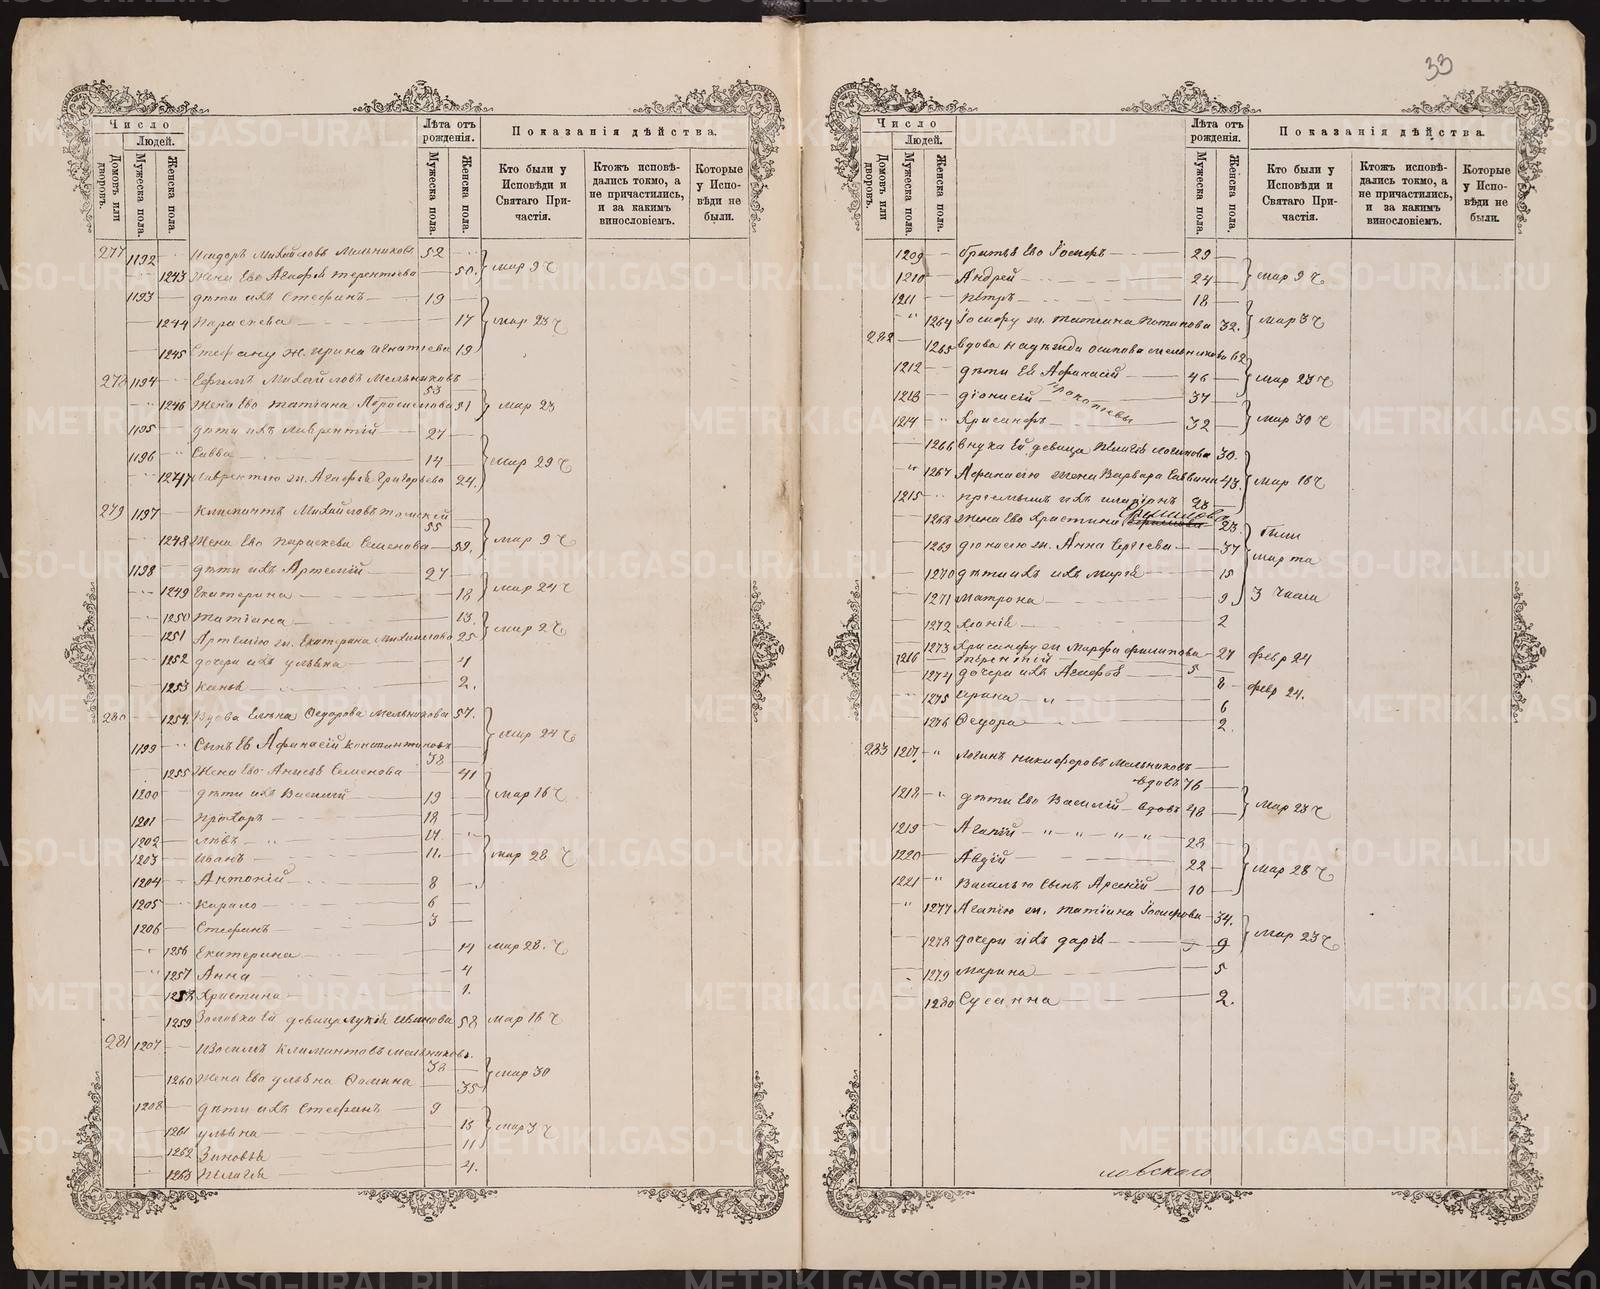 33
Число
Людей.
Домовъ или дворовъ.
Мужеска пола.
Женска пола.
Лѣта отъ рожденія.
Мужеска пола.
Женска пола.
Показанія дѣйства.
Кто были у Исповѣди и Святаго Причастія.
Ктожъ исповѣдались токмо, а не причастились, и за какимъ винословіемъ.
Которые у Исповѣди не были.
277 1192 Михайловъ Мельниковъ 52
1243 Жена Его Агафія Терентьева 50. мар 9 ч
1193 дѣти ихъ Стефанъ 19
1244 Параскева 17 мар 23 ч
1245 Стефану ж. Ирина Игнатьева 19
278 1194 Ефимъ Михайловъ Мельниковъ 53
1246 Жена Его Татіана 51 мар 23
1195 дѣти ихъ Лаврентій 27
1196 Савва 14 мар 29 ч
1247 Лаврентію ж. Агафія Григорьева 24.
279 1197 Климантъ Михайловъ 55
1248 Жена Его Параскева Семенова 59. мар 9 ч
1198 дѣти ихъ Артемій 27
1249 Екатерина 18 мар 24 ч
1250 Татіана 13.
1251 Артемію ж. Екатерина Михайлова 25 мар 2 ч
1252 дочери ихъ Ульяна 4
1253 2.
280 1254 Вдова Елена Федорова Мельникова 57.
1199 Сынъ Ея Афанасій Константиновъ 38 мар 24 ч
1255 Жена Его Анисья Семенова 41
1200 дѣти ихъ Василій 19 мар 16 ч
1201 Прохоръ 18
1202 14
1203 Иванъ 11. мар 28 ч
1204 Антоній 8
1205 Кирило 6
1206 Стефанъ 3
1256 Екатерина 14 мар 28. ч
1257 Анна 4
1258 Христина 1.
1259 Золовка Ей девица Лукія Иванова 58 мар 16 ч
281 1207 Климантовъ Мельниковъ. 38
1260 Жена Его Ульяна Фомина 35 мар 30
1208 дѣти ихъ Стефанъ 9
1261 Ульяна 13 мар 3 ч
1262 Зиновья 11
1263 Пелагія 4.
Число
Людей.
Домовъ или дворовъ.
Мужеска пола.
Женска пола.
Лѣта отъ рожденія.
Мужеска пола.
Женска пола.
Показанія дѣйства.
Кто были у Исповѣди и Святаго Причастія.
Ктожъ исповѣдались токмо, а не причастились, и за какимъ винословіемъ.
Которые у Исповѣди не были.
1209 братья Его Іосифъ 29
1210 Андрей 24 мар 9 ч
1211 Петръ 18
1264 Іосифу ж. Татіана Потапова 32. мар 3 ч
282 1265 вдова Надежда Осипова Мельникова 62
1212 дѣти Ея Афанасій 46 мар 23 ч
1213 Діонисій Прокопьевы 37
1214 Хрисанфъ 32 мар 30 ч
1266 внука Ей девица Логинова 30.
1267 Афанасію жена Варвара Саввина 43. мар 16 ч
1215 Иларіонъ 23
1268 Жена Его Христина 23.
1269 Діонисію ж. Анна Сергіева 37
1270 дѣти ихъ Марія 15
1271 Матрона 9
были марта 3 числа
1272 2
1273 Хрисанфу ж Марфа Филипова 27 февр 24
1216 Терентій 5
1274 дочери ихъ Агафья 8 февр 24.
1275 Ирина 6
1276 Федора 2.
283 1217 Логинъ Никифоровъ Мельниковъ
вдовъ 76
1218 дѣти Его Василій вдовъ 48 мар 23 ч
1219 Агапій 28
1220 Авдій 22 мар 28 ч
1221 Василью сынъ Арсеній 10
1277 Агапію ж. Татіана Іосифова 34.
1278 дочери ихъ Дарія 9 мар 23 ч
1279 Марина 5
1280 Сусанна 2.
ловскаго
METRIKI.GASO-URAL.RU